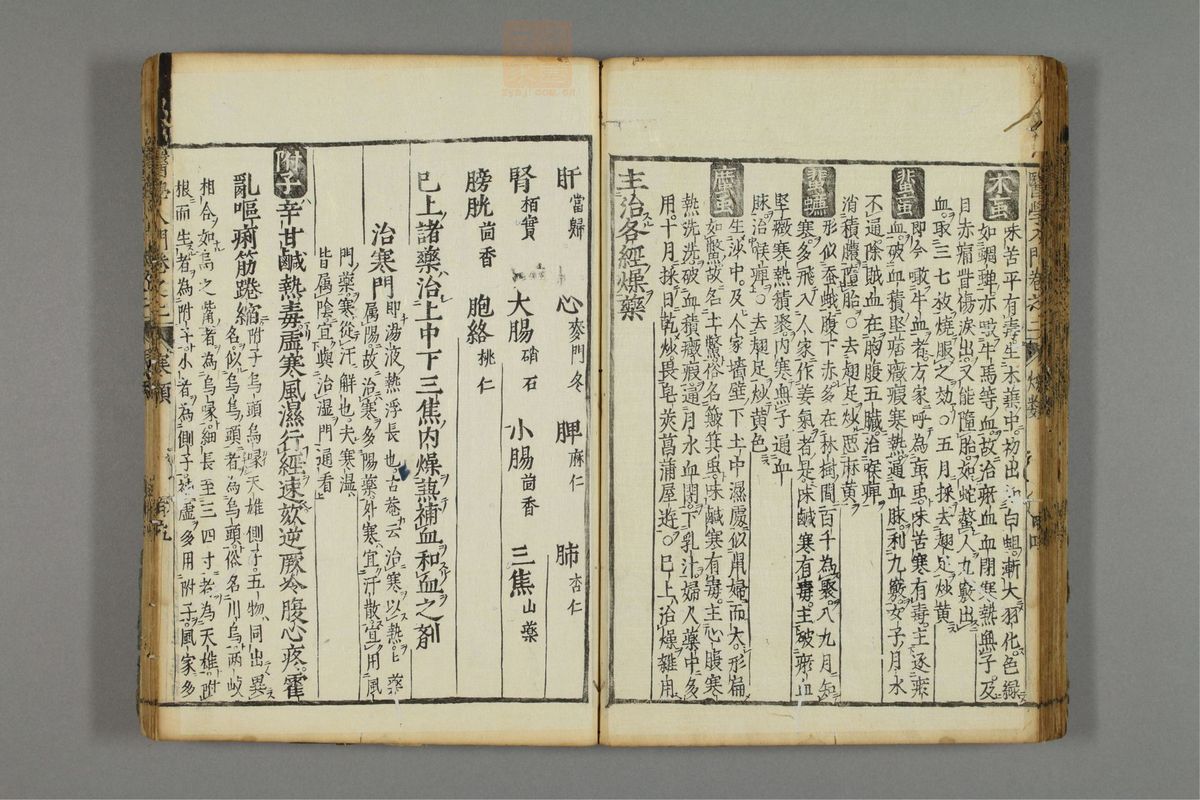 木䖟
味苦平有毒生木葉中初出如白蛆漸大羽化色綠
如蜩蟬亦噉牛馬等血故治瘀血血閉寒熱無子及
目赤痛眥傷淚出又能墮胎如蛇螫人九竅出
血取三七枚燒服之効○五月採去翅足炒黃
蜚䖟
即今噉牛血者方家呼為䖟虫味苦寒有毒主逐瘀
血破血積堅痞癥瘕寒熱通血脉利九竅女子月水
不通除賊血在胸腹五臟治喉痺
消積膿墮胎○去翅足炒惡麻黃
蜚蠊
形似蚕蛾腹下赤多在林樹間百千為聚八九月知
寒多飛入人家作姜氣者是味鹹寒有毒主破瘀血
堅癥寒熱積聚內寒無子通血
脉治喉痺○去翅足炒黃色
䗪虫
生沙中及人家墻壁下土中濕處似鼠婦而大形扁
如鱉故名土鱉俗名簸箕虫味鹹寒有毒主心腹寒
熱洗洗破血積癥瘕通月水血閉下乳汁婦人藥中多
用十月採日乾炒畏皂莢菖蒲屋遊○已上治燥雜用
主治各經燥藥
肝當歸 心麥門冬 脾麻仁 肺杏仁
腎栢實 大腸硝石 小腸茴香 三焦山藥
膀胱茴香 胞絡桃仁
已上諸藥治上中下三焦內燥蒸補血和血之劑
治寒門
即湯液熱浮長也古菴云治寒以熱上藥
屬陽故治寒多陽藥外寒宜汗散宜用風
門藥寒從汗解也夫寒濕
皆屬陰宜與治濕門通看
附子
辛甘鹹熱毒虛寒風濕行經速欬逆厥冷腹心疼霍
亂嘔痢筋踡縮
附子烏頭烏喙天雄側子五物同出異
名似烏烏頭者為烏頭俗名川烏兩歧
相合如烏之觜者為烏喙細長至三四寸者為天雄附
根而生者為附子小者為側子補虛多用附子風家多